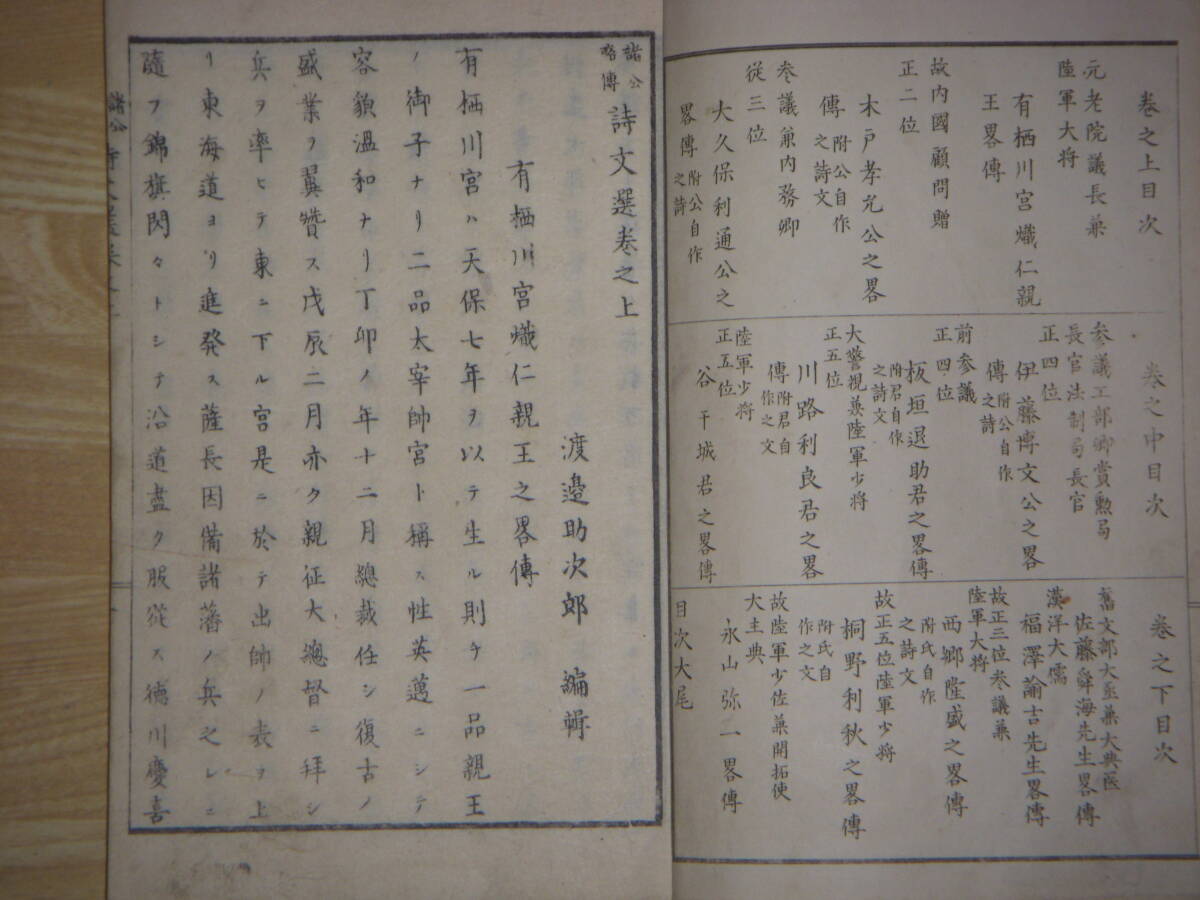 卷之上目次
元老院議長兼
陸軍大将
有栖川宮熾仁親
王畧傳
故内國顧問贈
正二位
木戸孝允公之畧
傳 附公自作
之詩文
参議兼内務卿
從三位
大久保利通公之
畧傳 附公自作
之詩
卷之中目次
参議工部卿賞勲局
長官法制局長官
正四位
伊藤博文公之畧
傳 附公自作
之詩
前参議
正四位
板垣退助君之畧傳
附君自作
之詩文
大警視兼陸軍少将
正五位
川路利良君之畧
傳 附君自
作之文
陸軍少将
正五位
谷干城君之畧傳
卷之下目次
舊文部大丞兼大典医
佐藤舜海先生畧傳
漢洋大儒
福澤諭吉先生畧傳
故正三位参議兼
陸軍大将
西郷隆盛之畧傳
附氏自作
之詩文
故正五位陸軍少将
桐野利秋之畧傳
附氏自
作之文
故陸軍少佐兼開拓使
大主典
永山弥二畧傳
目次大尾
諸公
略傳 詩文選卷之上
渡邉助次郎 編輯
有栖川宮熾仁親王之畧傳
有栖川宮ハ天保七年ヲ以テ生ル則チ一品親王
ノ御子ナリ二品太宰帥宮ト稱ス性英邁ニシテ
容貌溫和ナリ丁卯ノ年十二月總裁任シ復古ノ
盛業ヲ翼贊ス戊辰二月亦タ親征大總督ニ拜シ
兵ヲ率ヒテ東ニ下ル宮是ニ於テ出帥ノ表ヲ上
リ東海道ヨリ進発ス薩長因備諸藩ノ兵之レニ
隨フ錦旗閃々トシテ沿道盡ク服從ス徳川慶喜
諸公